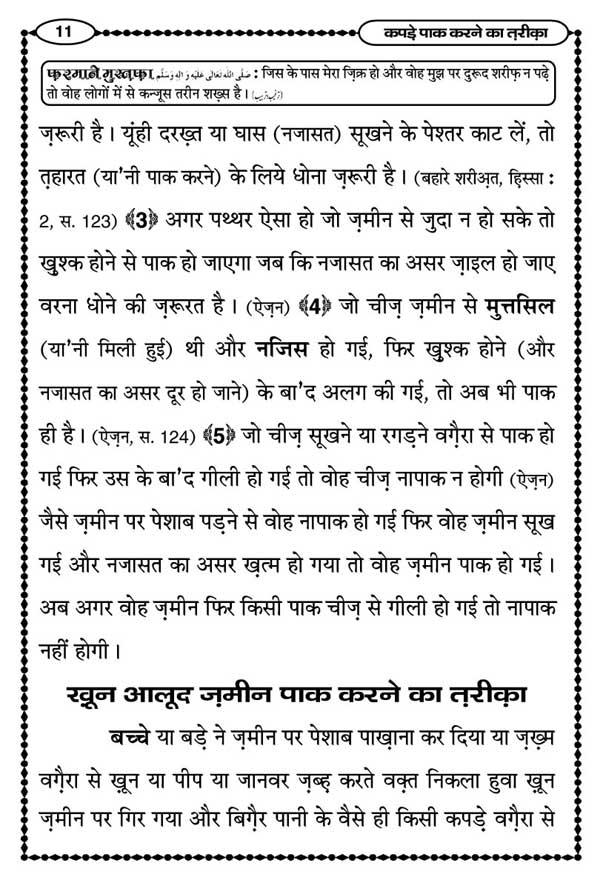 11
कपड़े पाक करने का त़रीक़ा
फ़रमाने मुस्त़फ़ा صَلَّى اللهُ تَعَالٰى عَلَيْهِ وَاٰلِهٖ وَسَلَّم : जिस के पास मेरा ज़िक्र हो और वोह मुझ पर दुरूद शरीफ़ न पढ़े
तो वोह लोगों में से कन्जूस तरीन शख़्स है ।
ज़रूरी है । यूंही दरख़्त या घास (नजासत) सूखने के पेश्तर काट लें, तो
त़हारत (या'नी पाक करने) के लिये धोना ज़रूरी है । (बहारे शरीअ़त, हि़स्सा :
2, स. 123) ﴾3﴿ अगर पथ्थर ऐसा हो जो ज़मीन से जुदा न हो सके तो
ख़ुश्क होने से पाक हो जाएगा जब कि नजासत का असर ज़ाइल हो जाए
वरना धोने की ज़रूरत है । (ऐज़न) ﴾4﴿ जो चीज़ ज़मीन से मुत्तसिल
(या'नी मिली हुई) थी और नजिस हो गई, फिर ख़ुश्क होने (और
नजासत का असर दूर हो जाने) के बा'द अलग की गई, तो अब भी पाक
ही है । (ऐज़न, स. 124) ﴾5﴿ जो चीज़ सूखने या रगड़ने वग़ैरा से पाक हो
गई फिर उस के बा'द गीली हो गई तो वोह चीज़ नापाक न होगी (ऐज़न)
जैसे ज़मीन पर पेशाब पड़ने से वोह नापाक हो गई फिर वोह ज़मीन सूख
गई और नजासत का असर ख़त्म हो गया तो वोह ज़मीन पाक हो गई ।
अब अगर वोह ज़मीन फिर किसी पाक चीज़ से गीली हो गई तो नापाक
नहीं होगी ।
ख़ून आलूद ज़मीन पाक करने का त़रीक़ा
बच्चे या बड़े ने ज़मीन पर पेशाब पाख़ाना कर दिया या ज़ख़्म
वग़ैरा से ख़ून या पीप या जानवर ज़ब्ह़ करते वक़्त निकला हुवा ख़ून
ज़मीन पर गिर गया और बिग़ैर पानी के वैसे ही किसी कपड़े वग़ैरा से